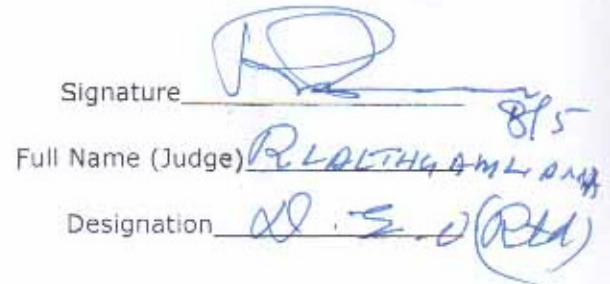 Signature
8/5
Full Name (Judge) R LALTHGAMLIANA
Designation D.E.O (Rtd)